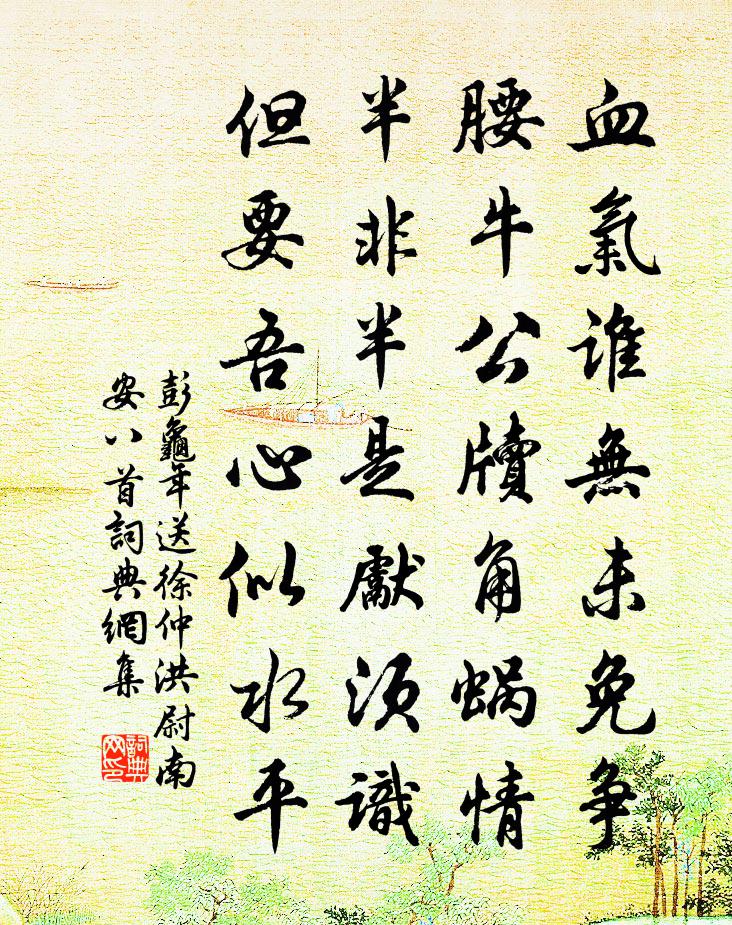 血氣誰無未免爭
腰牛公牘角蝸情
半非半是獻須識
但要吾心似水平
彭龜年送徐仲洪尉南
安八首詞典網集
詞典
网印